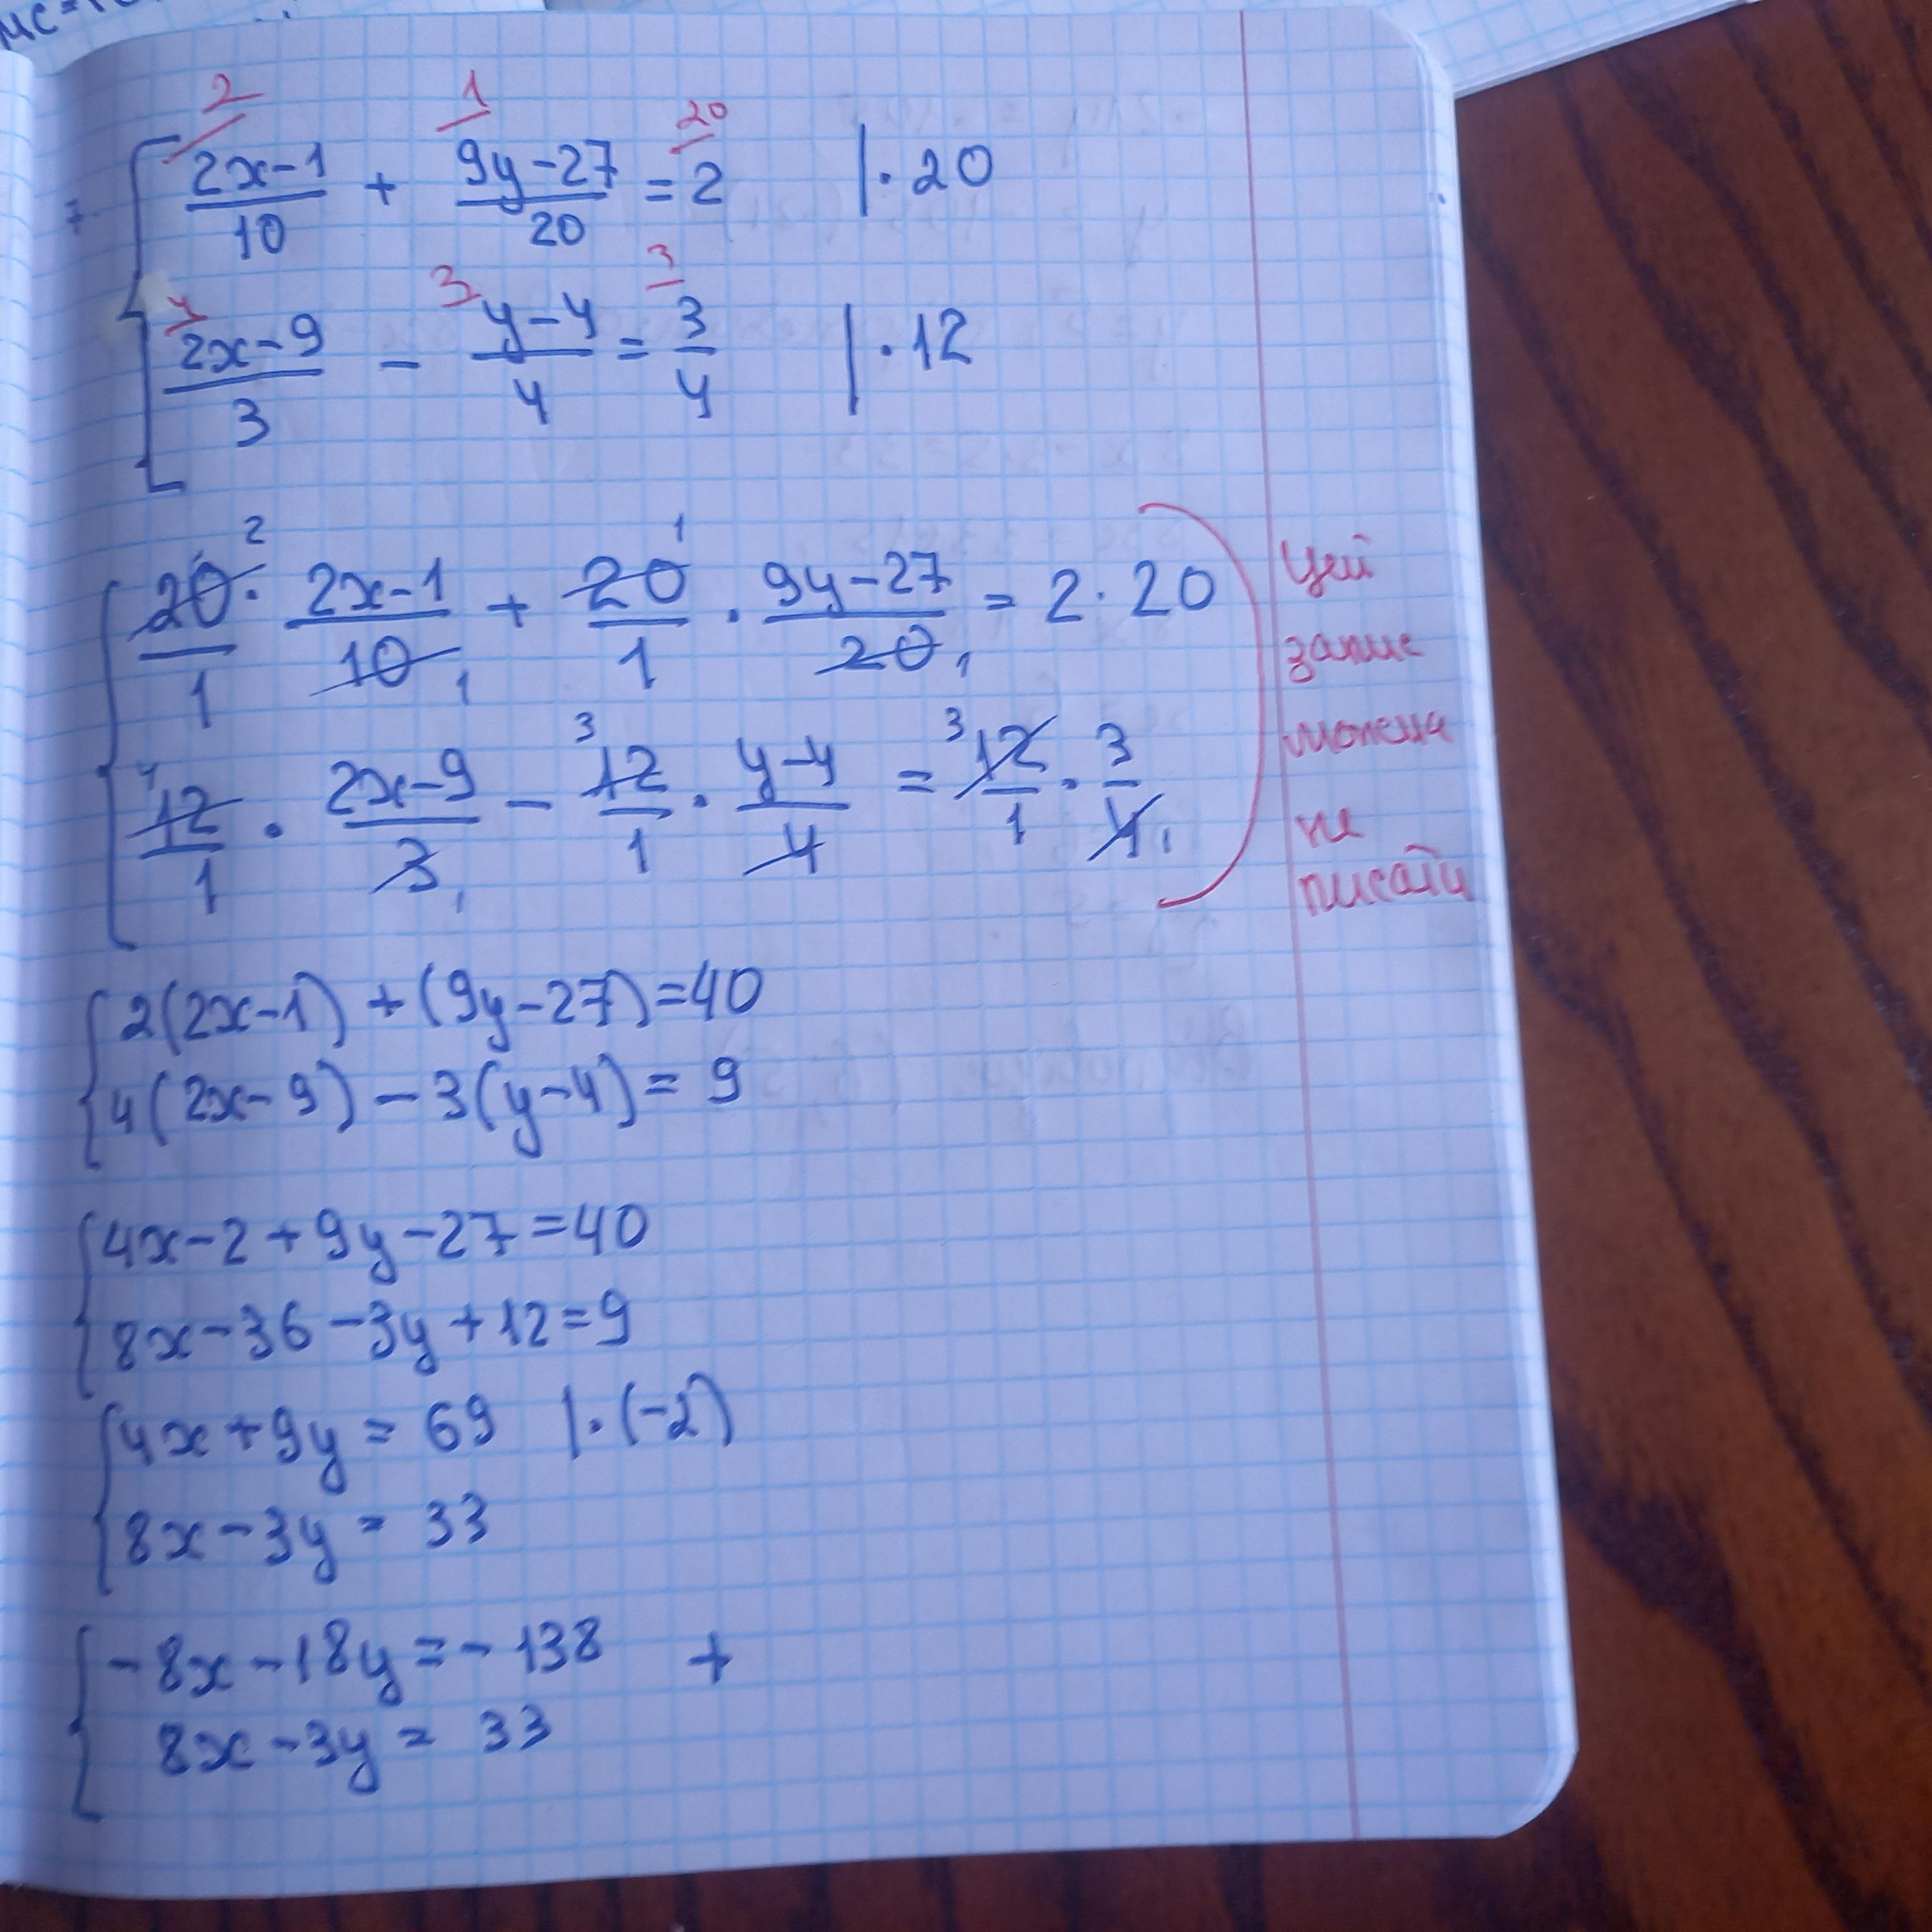 2 1 20
(2x-1)/10 + (9y-27)/20 = 2 | · 20
4 3 3
(2x-9)/3 - (y-4)/4 = 3/4 | · 12
20/1 · (2x-1)/10 + 20/1 · (9y-27)/20 = 2 · 20
12/1 · (2x-9)/3 - 12/1 · (y-4)/4 = 12/1 · 3/4
Цей
запис
можна
не
писати
2(2x-1) + (9y-27) = 40
4(2x-9) - 3(y-4) = 9
4x-2+9y-27=40
8x-36-3y+12=9
4x+9y = 69 | · (-2)
8x-3y = 33
-8x-18y=-138 +
8x-3y = 33